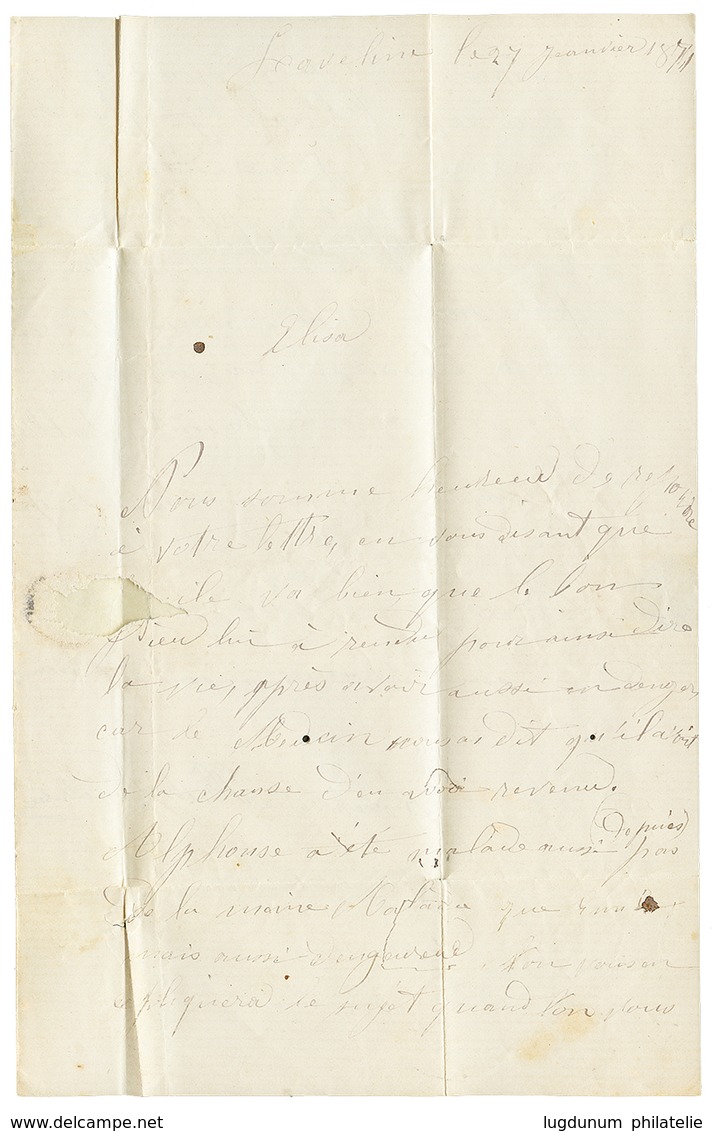 Laveline le 27 janvier 1871
Elisa
Nous somme heureux de repondre
à votre lettre, en vous disant que
ile va bien, que le bon
Dieu lui à rendu pour ainsi dire
la vie, après avoir aussi en denger
car le Medecin nous as dit qu'il avait
de la chanse d'en avoir revenu.
Alphonse a été malade aussi (depuis) pas
De la maime Maladie que
mais aussi dengereuse. l'on vous en
expliquera le sujet quand l'on vous
www.delcampe.net
lugdunum philatelie